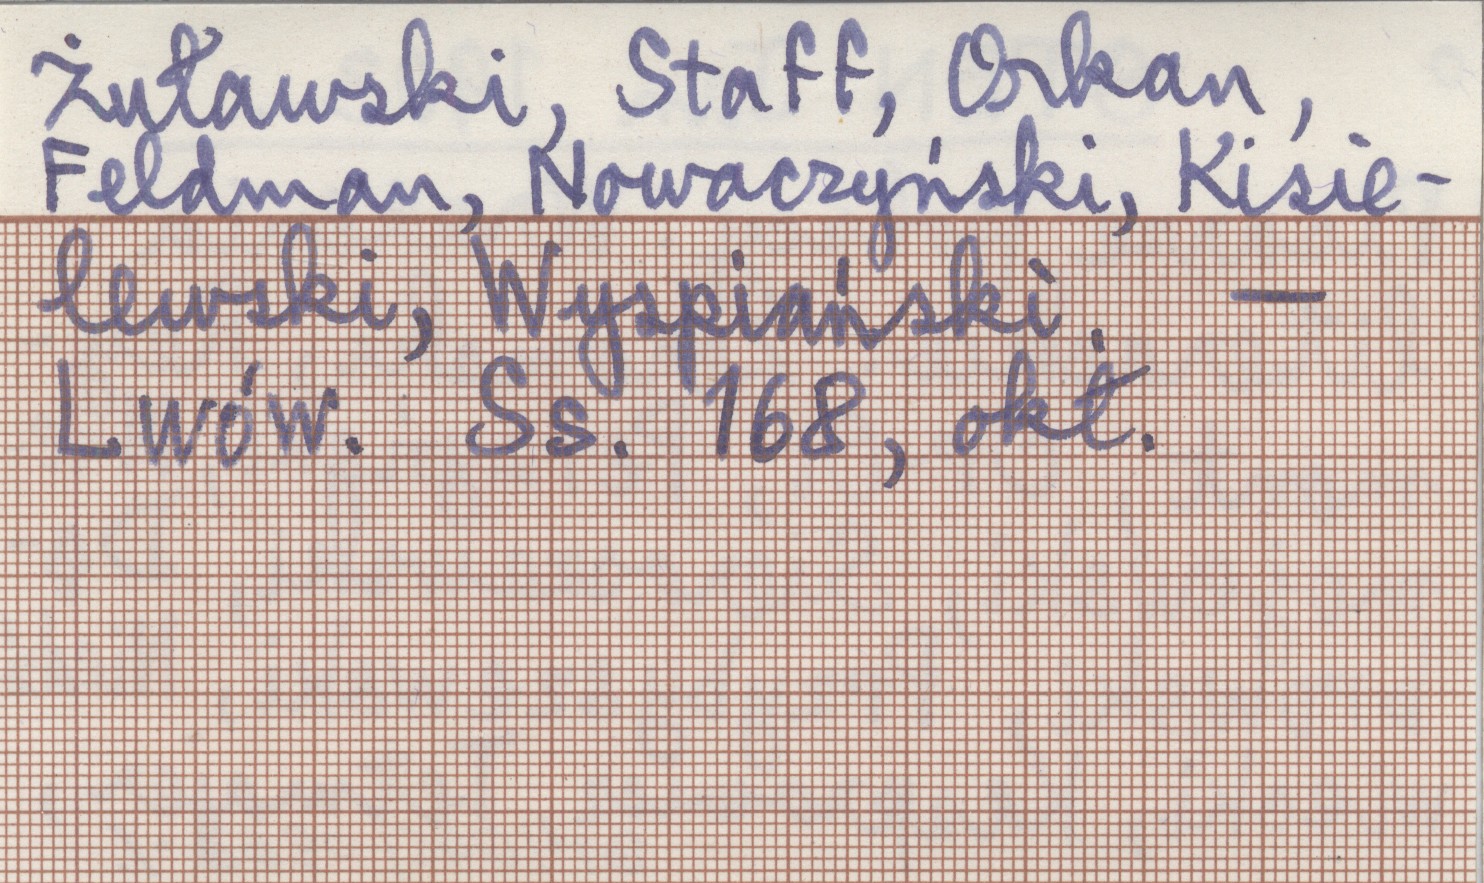 Żuławski, Staff, Orkan,
Feldman, Nowaczyński, Kisie-
lewski, Wyspiański. —
Lwów. Ss. 168, okt.